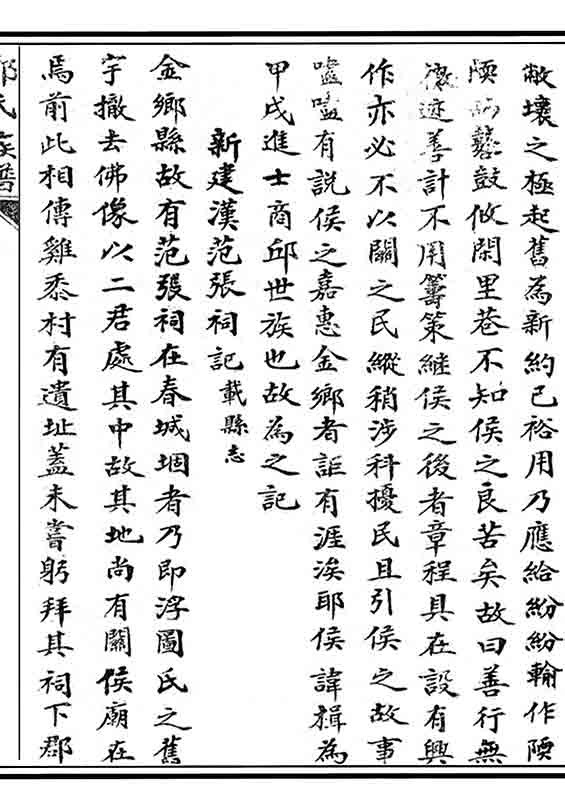 敝壞之極起舊為新約己裕用乃應給紛紛輸作陾
陾鼛鼓攸閑里巷不知侯之良苦矣故曰善行無
轍迹善計不用籌策繼侯之後者章程具在設有興
作亦必不以關之民縱稍涉科擾民且引侯之故事
嗑嗑有說侯之嘉惠金鄉者詎有涯涘耶侯諱楫為
甲戌進士商邱世族也故為之記
新建漢范張祠記載縣志
金鄉縣故有范張祠在春城堌者乃即浮圖氏之舊
宇撤去佛像以二君處其中故其地尚有關侯廟在
焉前此相傳雞黍村有遺址蓋未嘗躬拜其祠下郡
氏族譜